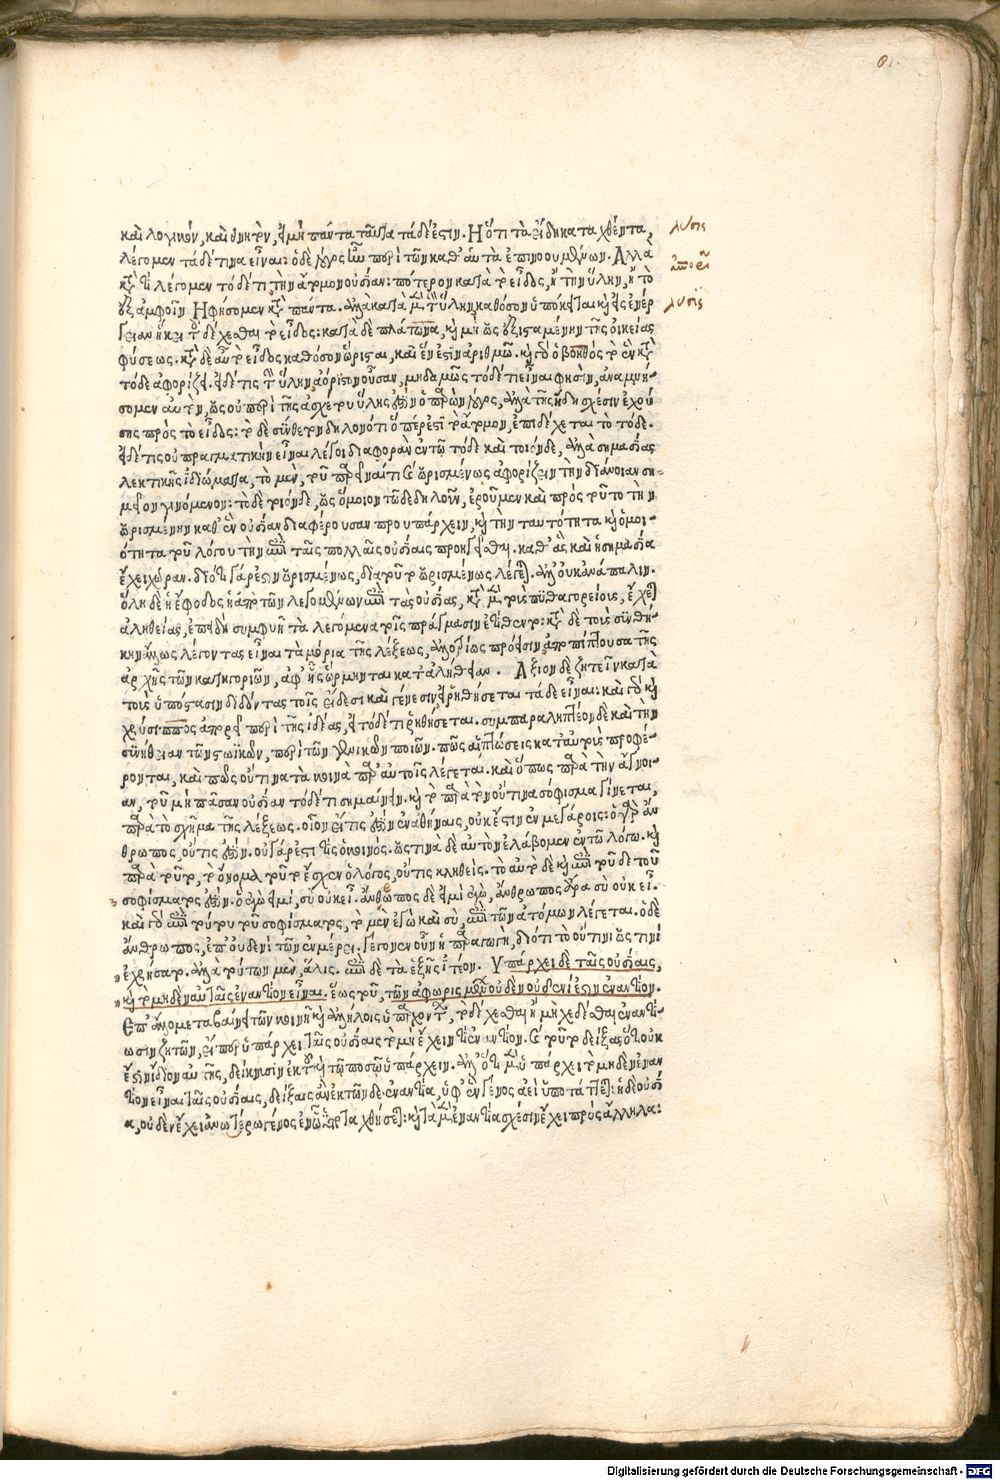 καὶ λογικόν, καὶ θνητὸν, εἰ μὴ πάντα ταῦτα τὰ δέ ἐστιν. Ἢ ὅτι τὰ εἴδη καταταχθέντα,
λέγομεν τάδε τινὰ εἶναι: ὁ δὲ λόγος ἦν περὶ τῶν καθ' αὑτὰ ἐπινοουμένων. Ἀλλὰ
κατὰ τί λέγομεν τόδε τι, τὴν ἄτομον οὐσίαν: πότερον κατὰ τὸ εἶδος, ἢ τὴν ὕλην, ἢ τὸ
ἐξ ἀμφοῖν. Ἢ φήσομεν κατὰ πάντα. ἀλλὰ κατὰ μὲν τὴν ὕλην καθόσον ὑπόκειται καὶ εἰς ἐνέρ
γειαν ἥκει τοῦ δέχεσθαι τὸ εἶδος: κατὰ δὲ πλάτωνα, καὶ μὴ ὡς ἐξισταμένην τῆς οἰκείας
φύσεως. κατὰ δὲ αὖ τὸ εἶδος καθόσον ὥρισται, καὶ ἕν ἐστιν ἀριθμῷ. καὶ γὰρ ὁ βοηθὸς τὸ ἓν κατὰ
τόδε ἀφορίζει. εἰ δέ τις τὴν ὕλην, ἀόριστον οὖσαν, μηδαμῶς τόδε τι εἶναι φησὶν, ἀναμνή-
σομεν αὐτὸν, ὡς οὐ περὶ τῆς ἀσχέτου ὕλης ἐστὶν ὁ παρὼν λόγος, ἀλλὰ τῆς ἤδη σχέσιν ἐχού
σης πρὸς τὸ εἶδος: τὸ δὲ σύνθετον δηλονότι ὅπέρ ἐστι τὸ ἄτομον, ἐπιδέχεται τὸ τόδε.
εἰ δέ τις οὐ πραγματικὴν εἶναι λέγοι διαφορὰν ἐν τῷ τόδε καὶ τοιόνδε, ἀλλὰ σημασίας
λεκτικῆς ἰδιώματα, τὸ μὲν, τοῦ παραστῆναί τι ὡς ὡρισμένως ἀφορίζειν τὴν διάνοιαν ση-
μεῖον γινόμενον: τὸ δὲ τοιόνδε, ὡς ὅμοιον τῷδε δηλοῦν, ἐροῦμεν καὶ πρὸς τοῦτο τὴν
ὡρισμένην καθ' ἓν οὐσίαν διαφέρουσαν προυπάρχειν, καὶ τὴν ταυτότητα καὶ ὁμοι-
ότητα τοῦ λόγου τὴν ἐπὶ ταῖς πολλαῖς οὐσίαις προηγεῖσθαι. καθ' ἃς καὶ ἡ σημασία
ἔχει χώραν. διότι γάρ ἐστιν ὡρισμένως, διὰ τοῦτο ὡρισμένως λέγεται. ἀλλ' οὐκ ἀνάπαλιν.
ὅλη δὲ ἡ ἔφοδος ἡ ἀπὸ τῶν λεγομένων ἐπὶ τὰς οὐσίας, κατὰ μὲν τοὺς πυθαγορείους, ἔχεται
ἀληθείας, ἐπειδὴ συμφυῆ τὰ λεγόμενα τοῖς πράγμασιν ἐτίθεντο: κατὰ δὲ τοὺς συνθή-
κην ἄλλως λέγοντας εἶναι τὰ μόρια τῆς λέξεως, ἀλλοτρίως πρόεισιν ἀποπίπτουσα τῆς
ἀρχῆς τῶν κατηγοριῶν, ἀφ' ἧς ὥρμηνται κατ' ἀλήθειαν. Ἄξιον δὲ ζητεῖν κατὰ
τοὺς ὑπόστασιν διδόντας τοῖς εἴδεσι καὶ γένεσιν εἰ ῥηθήσεται τάδε εἶναι: καὶ γὰρ καὶ
χρύσιππος ἀπορεῖ περὶ τῆς ἰδέας, εἰ τόδε τι ῥηθήσεται. συμπαραληπτέον δὲ καὶ τὴν
συνήθειαν τῶν στωϊκῶν, περὶ τῶν γενικῶν ποιῶν. πῶς αἱ πτώσεις κατ' αὐτοὺς προφέ-
ρονται, καὶ πῶς οὔτινα τὰ κοινὰ παρ' αὐτοῖς λέγεται. καὶ ὅπως παρὰ τὴν ἄγνοι-
αν, τοῦ μὴ πᾶσαν οὐσίαν τόδε τι σημαίνειν. καὶ τὸ παρὰ τὸν οὔτινα σόφισμα γίνεται,
παρὰ τὸ σχῆμα τῆς λέξεως. οἷον εἴ τις ἐστὶν ἐν ἀθήναις, οὐκ ἔστιν ἐν μεγάροις: ὁ γὰρ ἄν
θρωπος, οὔ τις ἐστίν. οὐ γάρ ἐστί τις ὁ κοινός. ὥς τινα δὲ αὐτὸν ἐλάβομεν ἐν τῷ λόγῳ. καὶ
παρὰ τοῦτο, τὸ ὄνομα τοῦτο ἔσχεν ὁ λόγος, οὔτις κληθείς. τὸ αὐτὸ δὲ καὶ ἐπὶ τοῦδε τοῦ
σοφίσματός ἐστιν. ὃ ἐγώ εἰμι, σὺ οὐκ εἶ. ἄνθρωπος δὲ εἰμὶ ἐγὼ, ἄνθρωπος ἄρα σὺ οὐκ εἶ.
καὶ γὰρ ἐπὶ τούτου τοῦ σοφίσματος, τὸ μὲν ἐγὼ καὶ σὺ, ἐπὶ τῶν ἀτόμων λέγεται. ὁ δὲ
ἄνθρωπος, ἐπ' οὐδενὶ τῶν ἐν μέρει. γέγονεν οὖν ἡ παραγωγὴ, διότι τὸ οὔτινι ὥς τινὶ
ἐχρήσατο. ἀλλὰ τούτων μὲν, ἅλις. ἐπὶ δὲ τὰ ἑξῆς ἰτέον. Ὑπάρχει δὲ ταῖς οὐσίαις,
καὶ τὸ μηδὲν αὐταῖς ἐναντίον εἶναι. ἕως τοῦ, τῶν ἀφωρισμένων οὐδὲν οὐδενί ἐστιν ἐναντίον.
Ἐπ' ἄλλο μεταβαίνει τῶν κοινῇ καὶ ἀλλήλοις ὑπαρχόντων, τὸ δέχεσθαι ἢ μὴ δέχεσθαι ἐναντί-
ωσιν ζητῶν, εἴπερ ὑπάρχει ταῖς οὐσίαις τὸ μὴ ἔχειν τι ἐναντίον. ὡς τοῦτο δείξας ὅτι οὐκ
ἔστιν ἴδιον αὐτῆς, δείκνυσιν ἐκ τοῦ καὶ τῷ ποσῷ ὑπάρχειν. ἀλλ' ὅτι μὲν ὑπάρχει τὸ μηδὲν ἐναν
τίον εἶναι ταῖς οὐσίαις, δείξαις ἂν ἐκ τῶνδε. ἐναντία, ὑφ' ἓν γένος ἀεὶ ὑποτάττεται: ἡ δὲ οὐσί
α, οὐδὲν ἔχει ἀνωτέρω γένος ἐν ᾧ ἀντιταχθήσεται: καὶ τὰ μὲν ἐναντία σχέσιν ἔχει πρὸς ἄλληλα:
λύσις
ἀπορία
λύσις
81.
Digitalisierung gefördert durch die Deutsche Forschungsgemeinschaft - DFG